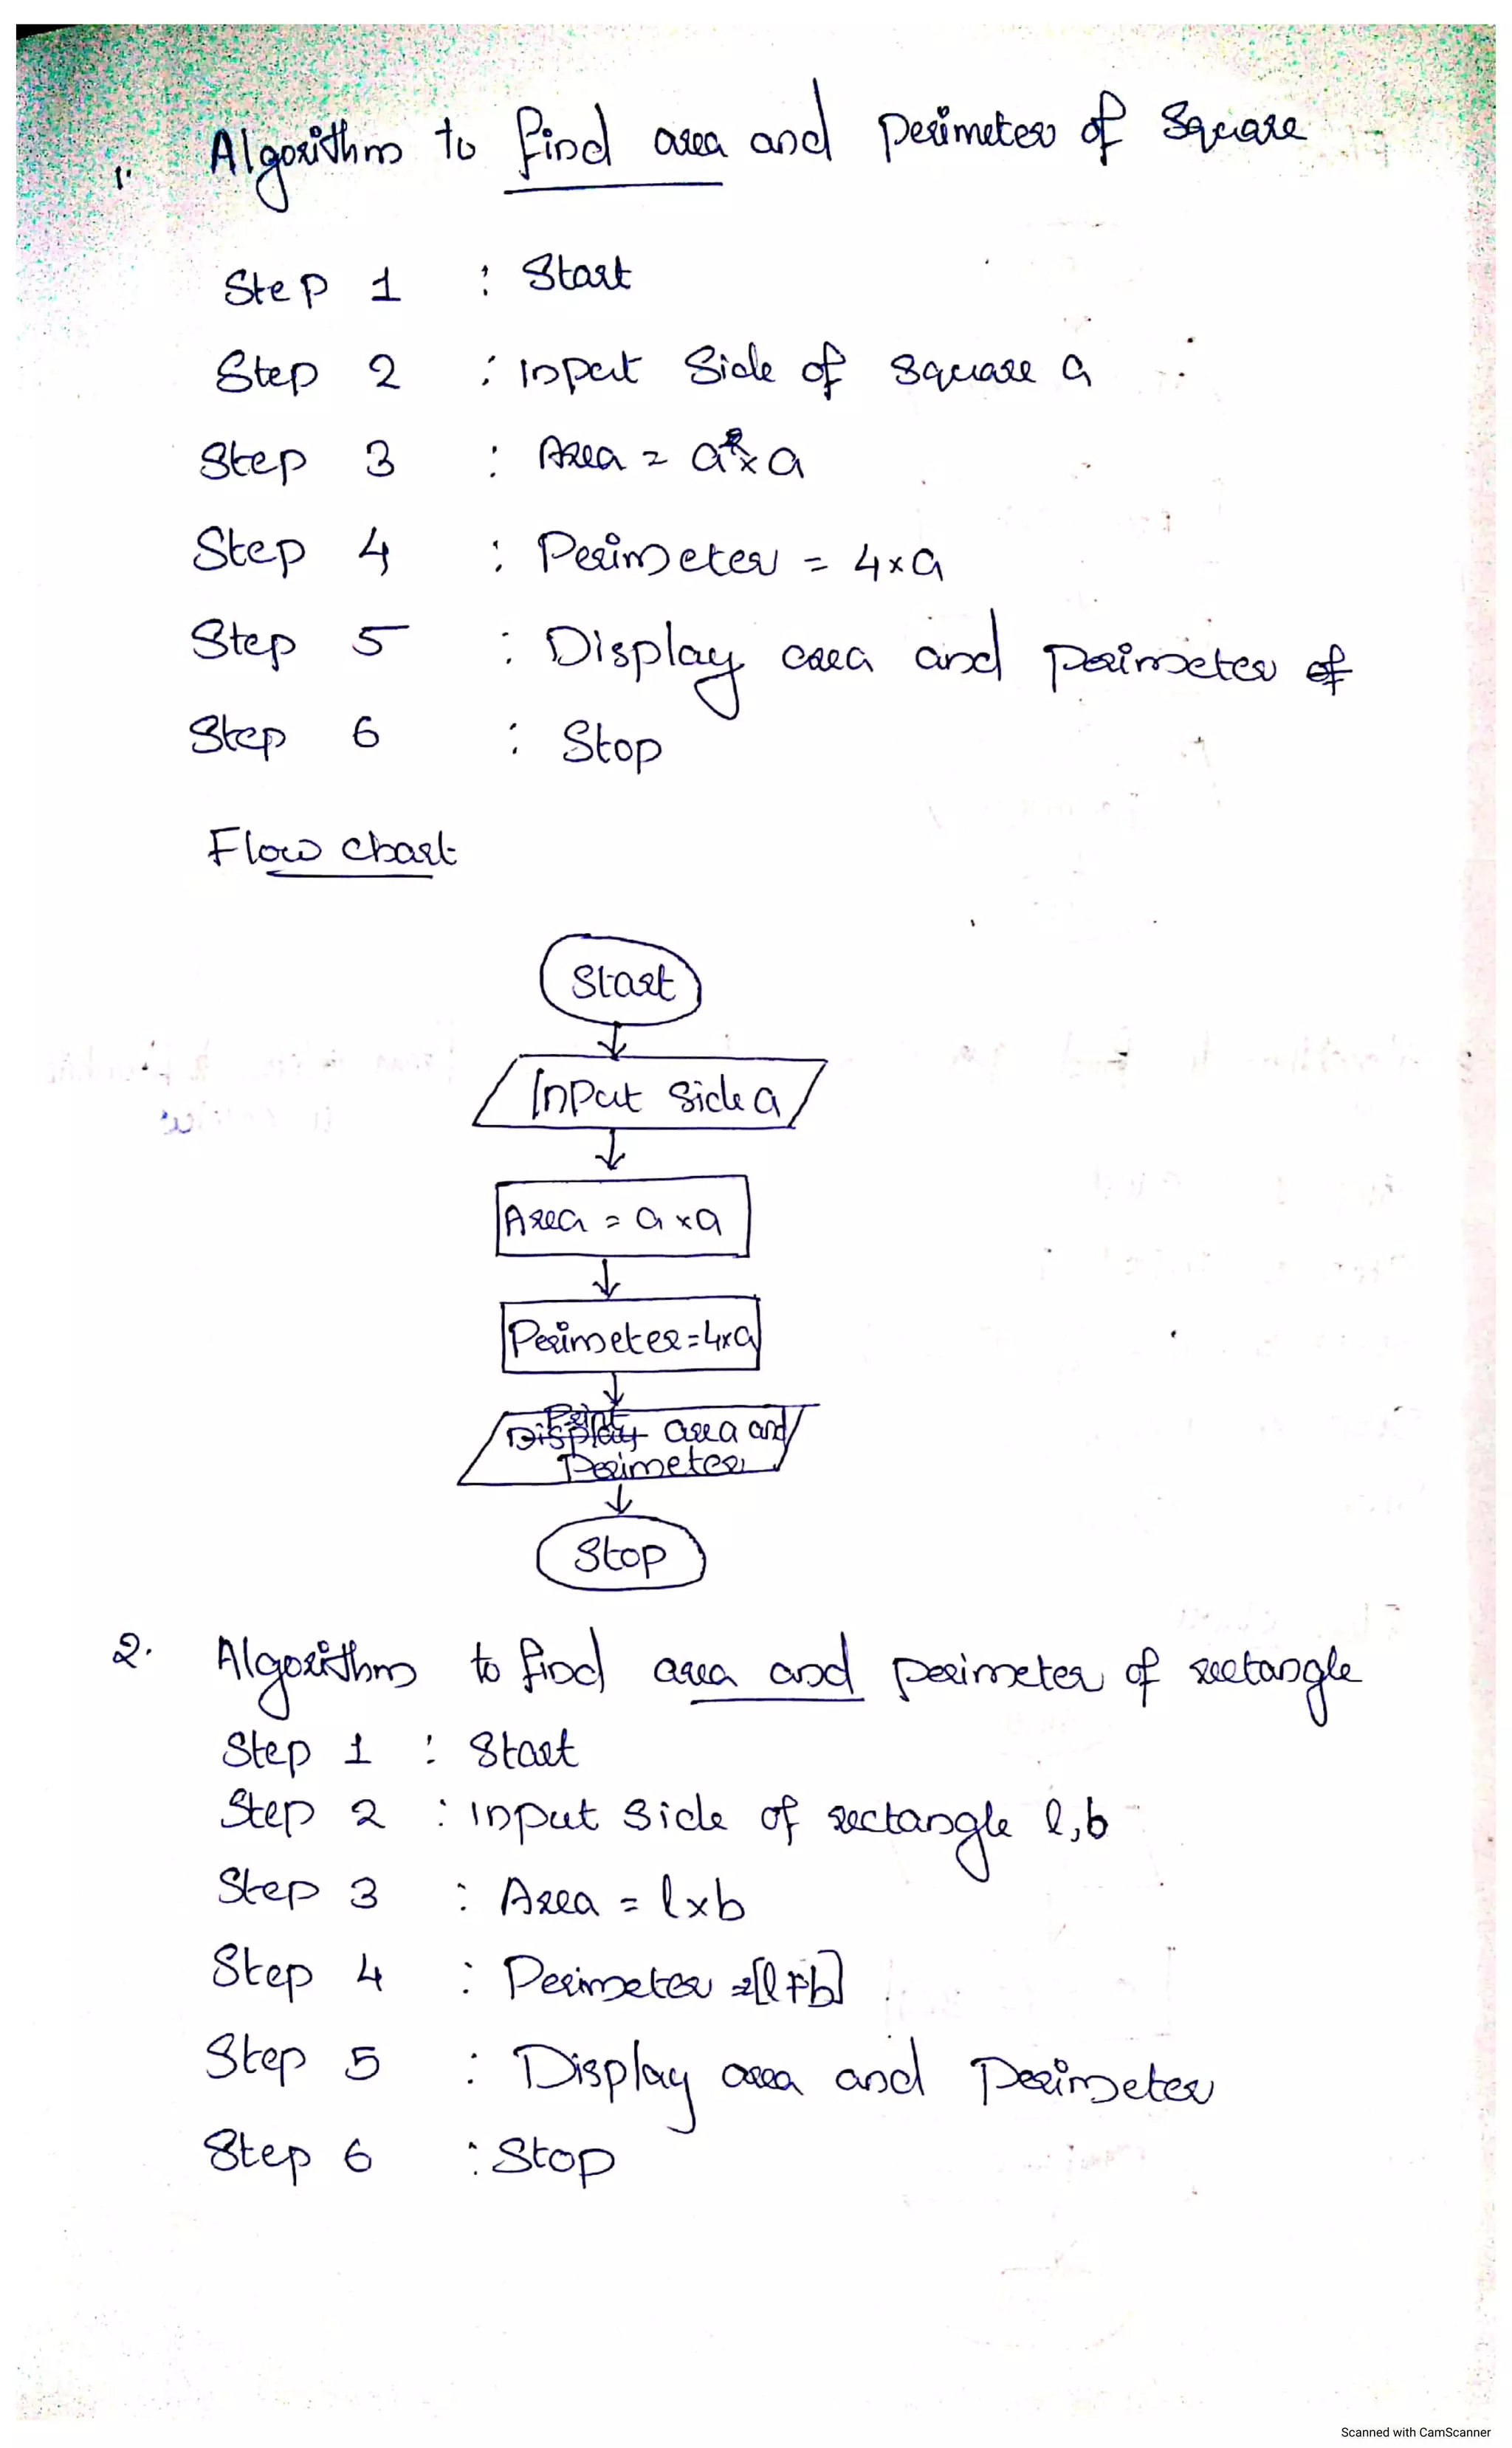 1. Algorithm to find area and perimeter of Square
Step 1 : Start
Step 2 : Input Side of Square a
Step 3 : Area = a x a
Step 4 : Perimeter = 4 x a
Step 5 : Display area and perimeter of
Step 6 : Stop
Flow chart
Start
Input Side a
Area = a x a
Perimeter = 4xa
Print
Display area and
Perimeter
Stop
2. Algorithm to find area and perimeter of rectangle
Step 1 : Start
Step 2 : Input Side of rectangle l,b
Step 3 : Area = lxb
Step 4 : Perimeter 2[l+b]
Step 5 : Display area and Perimeter
Step 6 : Stop
Scanned with CamScanner